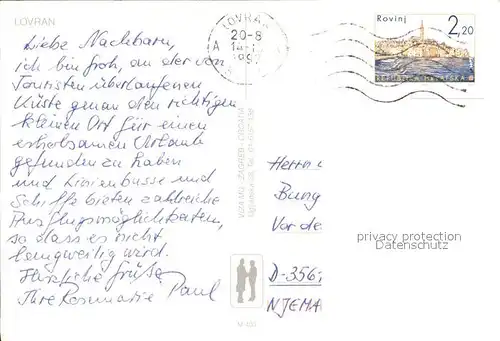 LOVRAN
Liebe Nachbarn,
ich bin froh, an der von
Touristen überlaufenen
Küste genau den richtigen
kleinen Ort für einen
erholsamen Urlaub
gefunden zu haben
und Linienbusse und
Schiffe bieten zahlreiche
Ausflugsmöglichkeiten,
so dass es nicht
langweilig wird.
Herzliche Grüße
Ihre Rosmarie Paul
LOVRAN
20-8
A
Rovinj
2,20
REPUBLIKA HRVATSKA
ZAGREB - CROATIA
Herrn
Bung
Vor de
privacy protection
Datenschutz
D-356
NJEMA